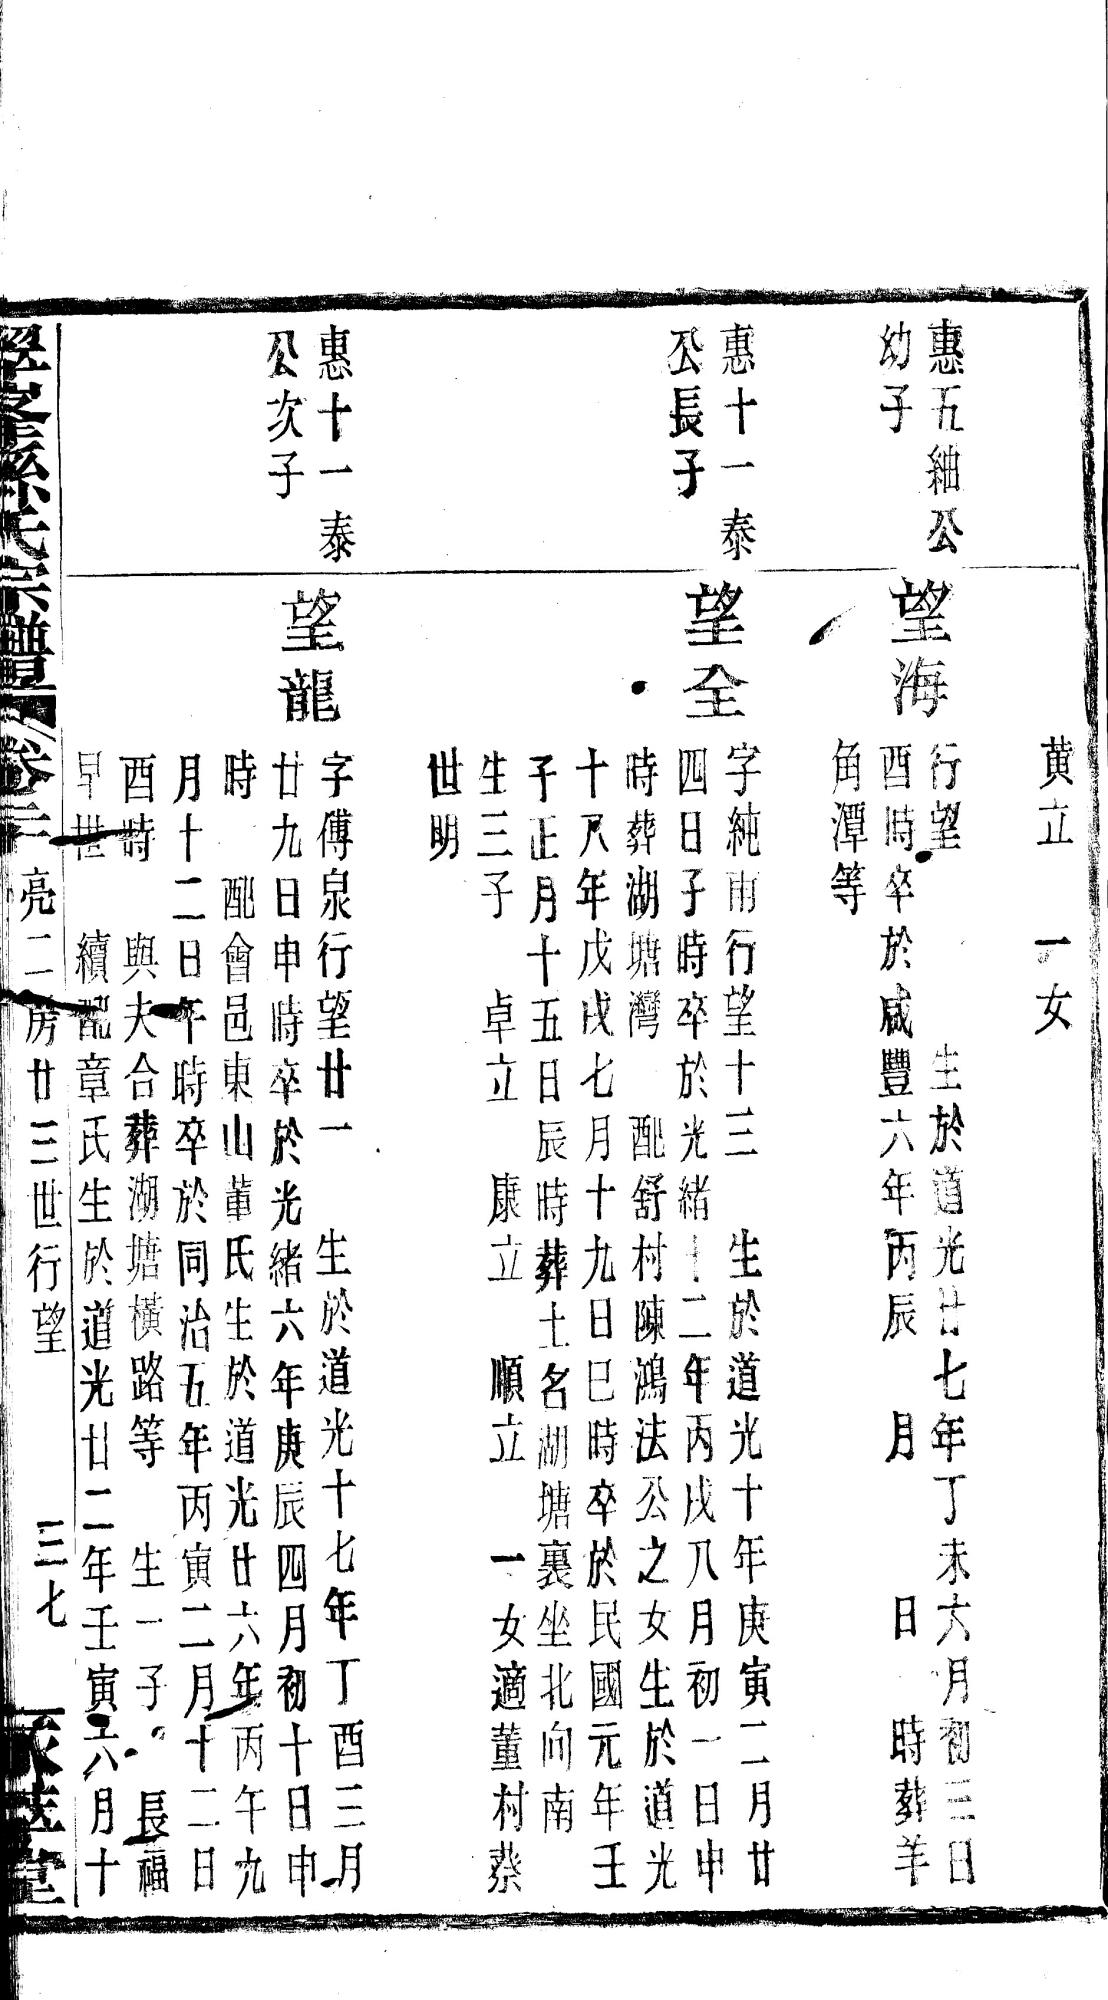 黄立　一女
惠五紬公
幼子
望海
行望　　　生於道光廿七年丁未六月初三日
酉時卒於咸豐六年丙辰　月　　日　時葬羊
角潭等
惠十一泰
公長子
望全
字純雨行望十三　生於道光十年庚寅二月廿
四日子時卒於光緒十二年丙戌八月初一日申
時葬湖塘灣　配舒村陳鴻法公之女生於道光
十八年戊戌七月十九日巳時卒於民國元年壬
子正月十五日辰時葬土名湖塘裏坐北向南
生三子　卓立　康立　順立　一女適董村蔡
世明
惠十一泰
公次子
望龍
字傅泉行望廿一　生於道光十七年丁酉三月
廿九日申時卒於光緒六年庚辰四月初十日申
時　配會邑東山董氏生於道光廿六年丙午九
月十二日午時卒於同治五年丙寅二月十二日
酉時　與夫合葬湖塘橫路等　生一子　長福
早世　續配章氏生於道光廿二年壬寅六月十
孫氏宗譜　卷二　亮二房廿三世行望　三七　堂